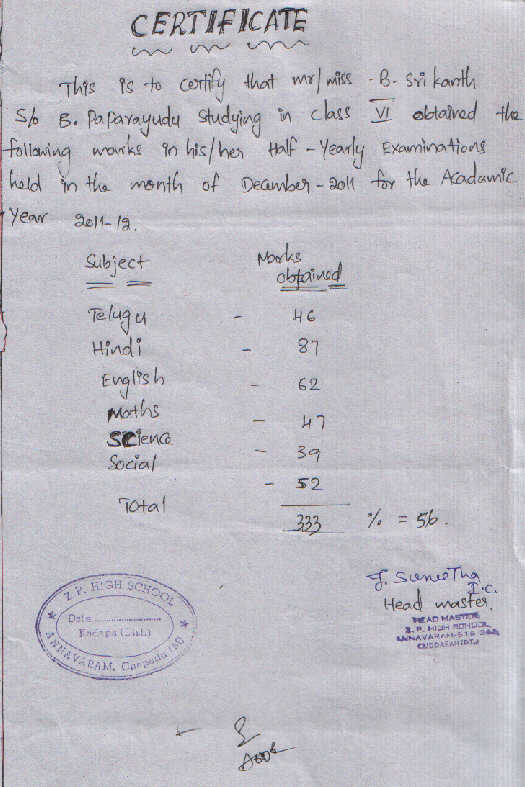 CERTIFICATE
This is to certify that mr/miss - B. Srikanth
S/o B. Paparayudu Studying in class VI obtained the
following marks in his/her Half - Yearly Examinations
held in the month of December - 2011 for the Acadamic
Year 2011-12.
Subject Marks
obtained
Telugu - 46
Hindi - 87
English - 62
Maths - 47
Science - 39
Social - 52
Total 333 % = 56.
J. Suneetha
I.C.
Head master.
HEAD MASTER
Z. P. HIGH SCHOOL
ANNAVARAM-516
CUDDAPAH (Dt.)
Z. P. HIGH SCHOOL
Date
Kadapa (Dist)
ANNAVARAM,